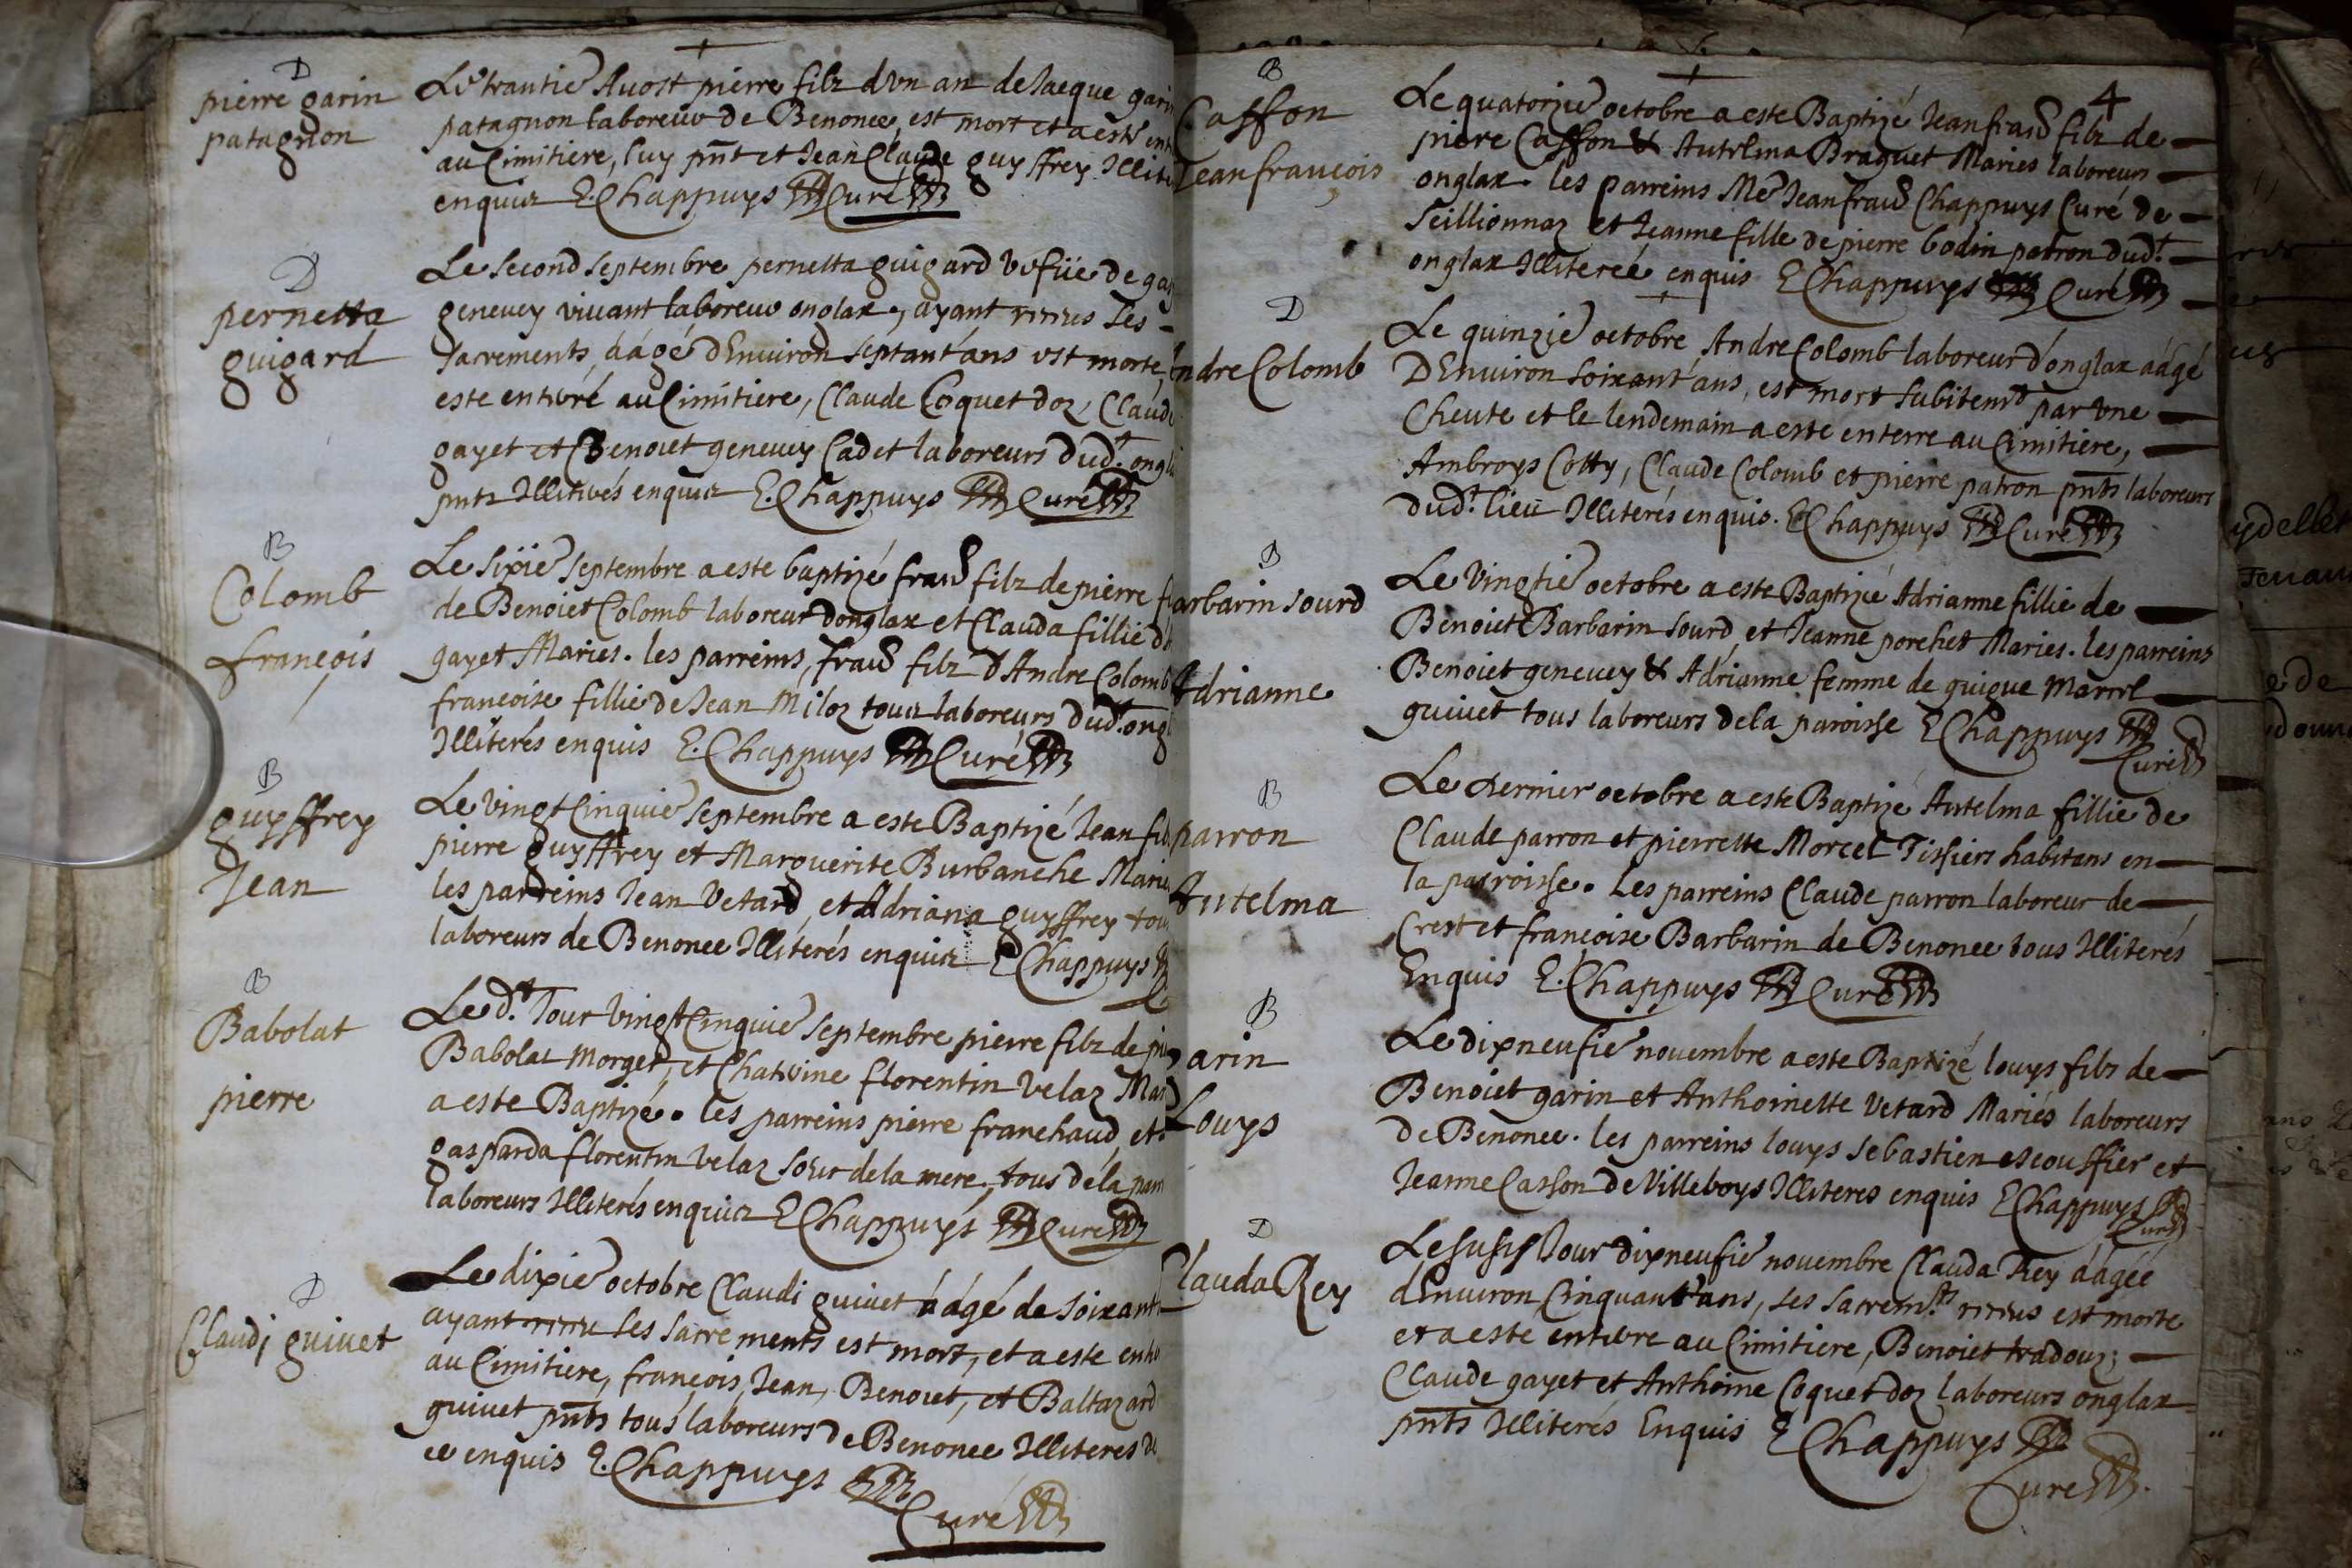 D
pierre garin
patagnon
Le trantie Auost pierre filz d'vn an de Jacque garin
patagnon laboreur de Benonce, est mort et a este ent
au Cimitiere, luy pnt et Jean Claude guyffrey Illite
enquis E. Chappuys Curé
D
pernetta
guigard
Le second septembre pernetta guigard vefüe de gas
geneuey viuant laboreur onglax, ayant receus ses
sacrements, áágé d'Enuiron septant'ans est morte,
este enterré au Cimitiere, Claude Coquet doz, Claude
gayet et Benoiet geneuey Cadet laboreurs dudt. ongla
pnts Illiterés enquis E. Chappuys Curé
B
Colomb
françois
Le sixie septembre a este baptizé frans filz de pierre f
de Benoiet Colomb laboreur donglax et Clauda fillie d
gayet Maries. les parreins, frans filz d'Andre Colomb
francoise fillie de Jean Miloz tous laboreurs dudt. ong
Illiterés enquis E. Chappuys Curé
B
guyffrey
Jean
Le vingt Cinquie septembre a este Baptizé Jean fil
pierre guyffrey et Marguerite Burbanche Marie
les parreins Jean Vetard, et Adriana guyffrey tou
laboreurs de Benonce Illiterés enquis E Chappuys
B
Babolat
pierre
Le dt. Jour vingt Cinquie septembre pierre filz de pie
Babolat Morget, et Chaterine florentin velaz Mar
a este Baptizé. les parreins pierre franchaud, et
gasparda florentin velaz soeur de la mere, tous de la par
laboreurs Illiterés enquis E Chappuys Curé
D
Claudi guiuet
Le dixie octobre Claudi guiuet áágé de soixant
ayant receu ses sacrements est mort, et a este ente
au Cimitiere, françois, Jean, Benoiet, et Baltazard
guiuet pnts tous laboreurs de Benonce Illiteres de
ce enquis E. Chappuys
Curé
4
B
Casson
Jean françois
Le quatorzie octobre a este Baptizé Jean frans filz de
piere Casson & Antelma Braguet Maries laboreurs
onglax. les parreins Me Jean frans Chappuys Curé de
Seillionnaz et Jeanne fille de pierre bodin patron dudt.
onglax Illiterée enquis E Chappuys Curé
D
Andre Colomb
Le quinzie octobre Andre Colomb laboreur d'onglax áágé
D'Enuiron soixant'ans, est mort subitemt par vne
Cheute et le lendemain a este enterre au Cimitiere,
Ambroys Cotty, Claude Colomb et pierre patron pnts laboreurs
dudt. lieu Illiterés enquis. E Chappuys Curé
B
arbarin sourd
Adrianne
Le vingtie octobre a este Baptizée Adrianne fillie de
Benoiet Barbarin sourd, et Jeanne porchet Maries. les parreins
Benoiet geneuey & Adrianne femme de guigue Marcel
guiuet tous laboreurs de la paroisse E Chappuys
Curé
B
parron
Antelma
Le dernier octobre a este Baptizé Antelma fillie de
Claude parron et pierrette Morcel Tissiers habitans en
la parroisse. Les parreins Claude parron laboreur de
Crest et francoise Barbarin de Benonce tous Illiterés
Enquis E. Chappuys Curé
B
arin
Louys
Le dixneufie nouembre a este Baptizé louys filz de
Benoiet garin et Anthoinette Vetard Mariés laboreurs
de Benonce. les parreins louys sebastien escouffier et
Jeanne Casson de Villeboys Illiteres enquis E Chappuys
Curé
D
Clauda Rey
Le susdt Jour dixneufie nouembre Clauda Rey áágée
d'Enuiron Cinquant'ans, ses sacremts. receus est morte
et a este enterre au Cimitiere, Benoiet tradouz,
Claude gayet et Anthoine Coquet doz laboreurs onglax
pnts Illiterés Enquis E Chappuys
Curé